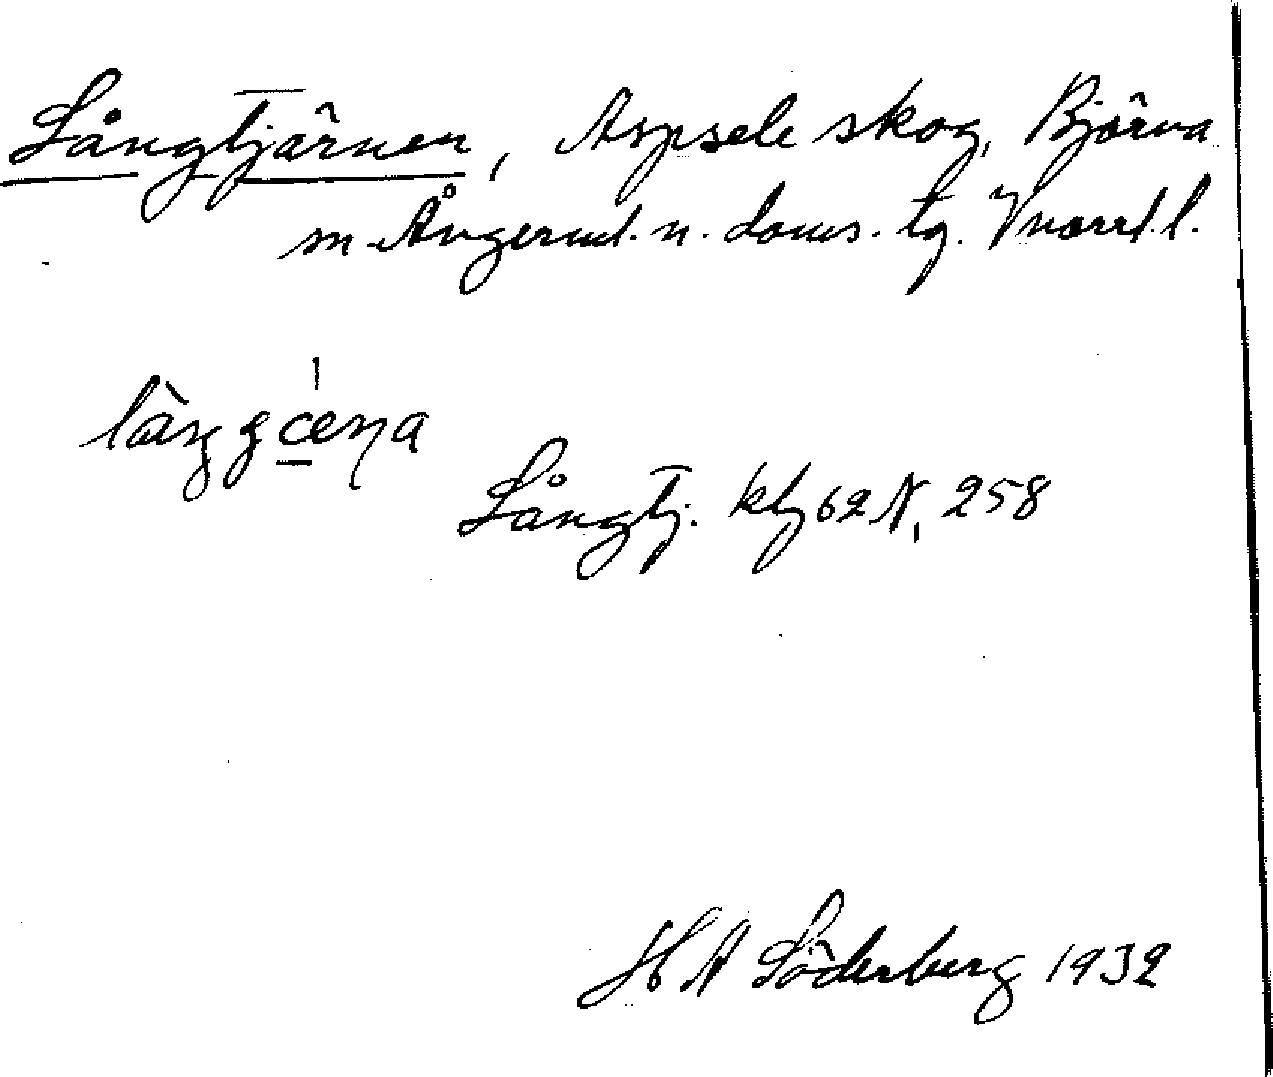 Långtjärnen, Aspsele skog, Björna
sn Ångerml. n. doms. tg. Vnorrl. l.
Långtj. kbl 62 N, 258
H A Söderberg 1932